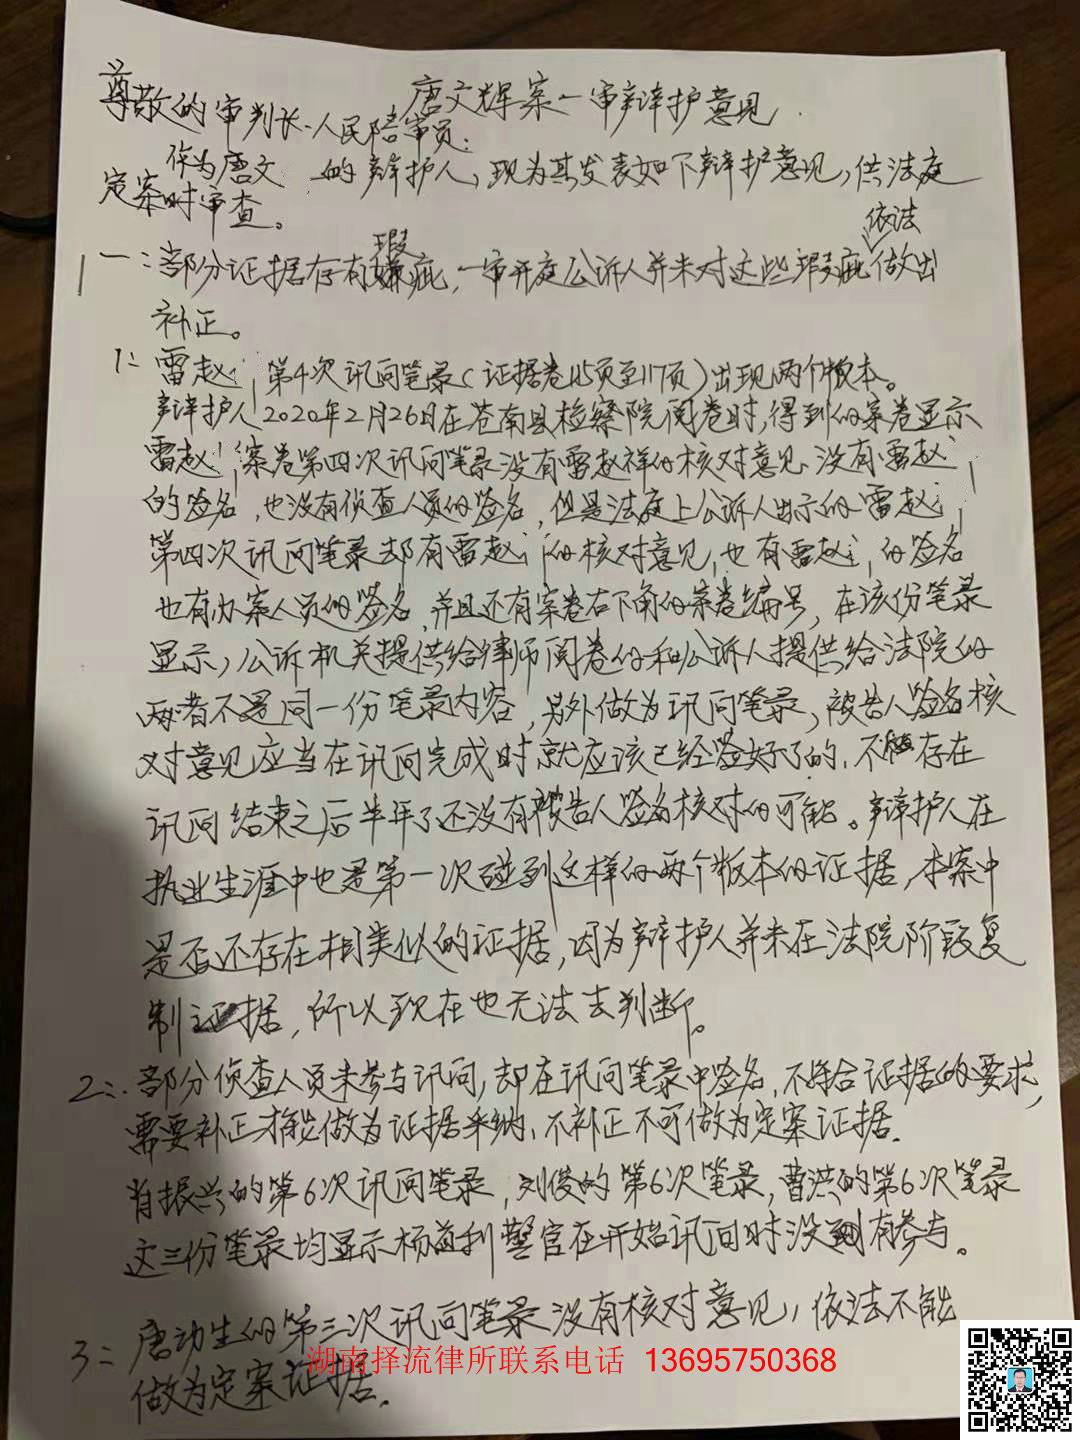 唐文辉案一审辩护意见
尊敬的审判长、人民陪审员：
作为唐文 的辩护人，现为其发表如下辩护意见，供法庭
定案时审查。
一：部分证据存有瑕疵，一审开庭公诉人并未对这些瑕疵依法做出
补正。
1：雷赵 第4次讯问笔录（证据卷115页至117页）出现两个版本。
辩护人2020年2月26日在苍南县检察院阅卷时，得到的案卷显示
雷赵 案卷第四次讯问笔录没有雷赵祥的核对意见、没有雷赵
的签名，也没有侦查人员的签名，但是法庭上公诉人出示的雷赵
第四次讯问笔录却有雷赵 的核对意见，也有雷赵 的签名
也有办案人员的签名，并且还有案卷右下角的案卷编号，在该份笔录
显示，公诉机关提供给律师阅卷的和公诉人提供给法院的
两者不是同一份笔录内容，另外做为讯问笔录，被告人签名核
对意见应当在讯问完成时就应该已经签好了的，不能存在
讯问结束之后半年了还没有被告人签名核对的可能。辩护人在
执业生涯中也是第一次碰到这样的两个版本的证据，本案中
是否还存在相类似的证据，因为辩护人并未在法院阶段复
制证据，所以现在也无法去判断。
2：部分侦查人员未参与讯问，却在讯问笔录中签名，不符合证据的要求，
需要补正才能做为证据采纳，不补正不可做为定案证据。
肖振兴的第6次讯问笔录，刘俊的第6次笔录，曹洪的第6次笔录
这三份笔录均显示杨益利警官在开始讯问时没有参与。
3：唐功生的第三次讯问笔录没有核对意见，依法不能
做为定案证据。
湖南择流律所联系电话 13695750368